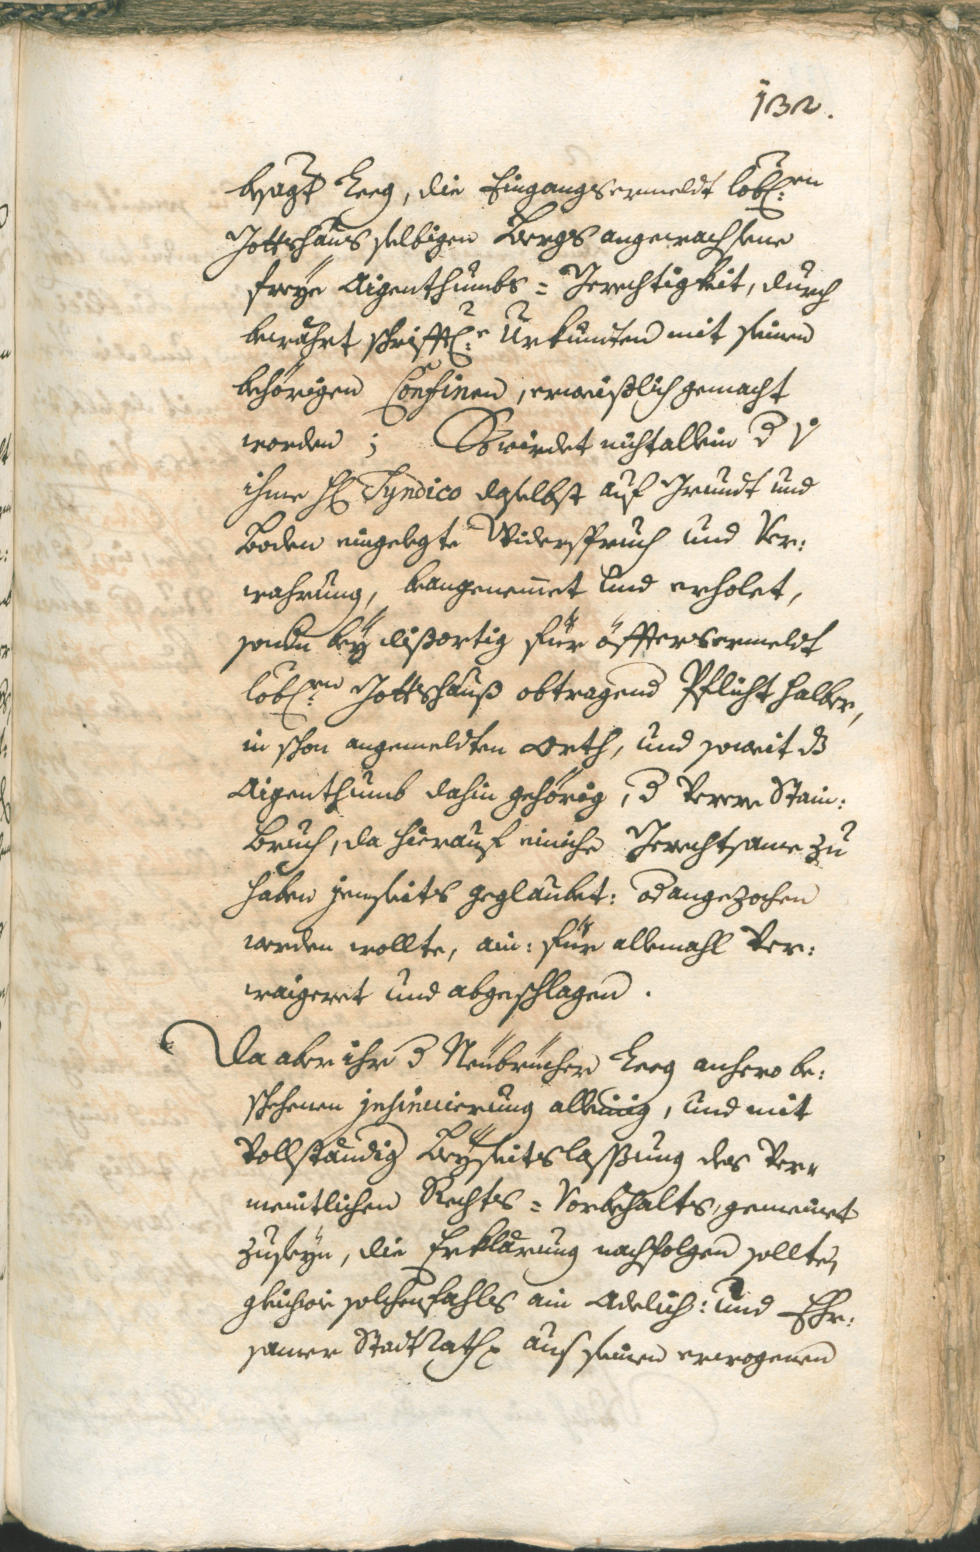 132.
besagt Leeg, die Eingangsermeldt lobl:en
Gottshaus selbigen Bergs angewachsene
freye Aigenthumbs = Gerechtigkeit, durch
bewährt schrifftl:e Urkunten mit seinen
behörigen Confinen, erweißlich gemacht
worden ; So wirdet nicht allein d v
ihme H Syndico daselbst auf Grundt und
Boden eingelegte Widerspruch und Ver:
wahrung, beangenemet und erholet,
sondern bey dißortig für öffterermeldt
lobl:en Gottshauß obtragend Pflicht halber,
in schon angemeldten Orth, und soweit ds
Aigenthumb dahin gehörig, d Stain:
bruch, da hierauf einiche Gerechtsame zu
haben jenseits geglaubet: od angezochen
werden wollte, ain: für allemahl Ver:
waigeret und abgeschlagen.
Da aber ihr d Neubrücher Leeg anhero be:
schehenen insinuierung alleinig, und mit
Vollständig Beyseitslassung des Ver:
meintlichen Rechts = Vorbehalts, gemeinet
zuseyn, die Erklärung nachfolgen sollte,
gleichwie solchenfahls ain Adelich: und Ehr:
samer Stadt Rath aus seinen erwogenen